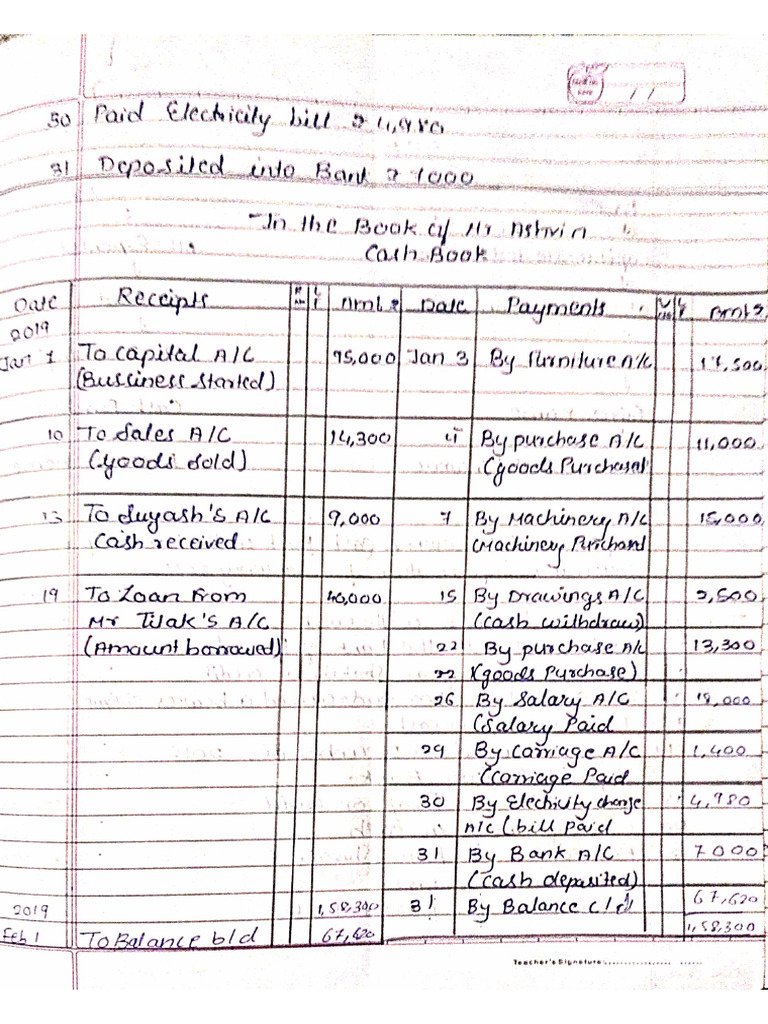 30 Paid Electricity bill ₹ 4,980
31 Deposited into Bank ₹ 7000
In the Book of Mr Ashvin
Cash Book
Date Receipts L F Amt ₹ Date Payments L F Amt ₹
2019
Jan 1 To Capital A/C 95,000 Jan 3 By Furniture A/C 17,500
(Bussiness Started)
10 To Sales A/C 14,300 4 By purchase A/C 11,000
(goods sold) (goods Purchased
13 To Suyash's A/C 9,000 7 By Machinery A/C 15,000
Cash received (Machinery
19 To Loan From 40,000 15 By Drawings A/C 2,500
Mr Tilak's A/C (Cash withdraw)
(Amount borrowed) 22 By purchase A/c 13,300
22 (goods Purchase)
26 By Salary A/C 18,000
(Salary Paid
29 By Carriage A/C 1,400
(Carriage Paid
30 By Elechivity charge 4,980
A/c (bill paid
31 By Bank A/C 7000
(Cash deposited)
2019 1,58,300 31 By Balance c/d 67,620
Feb 1 To Balance b/d 67,620 1,58,300
Teacher's Signature: